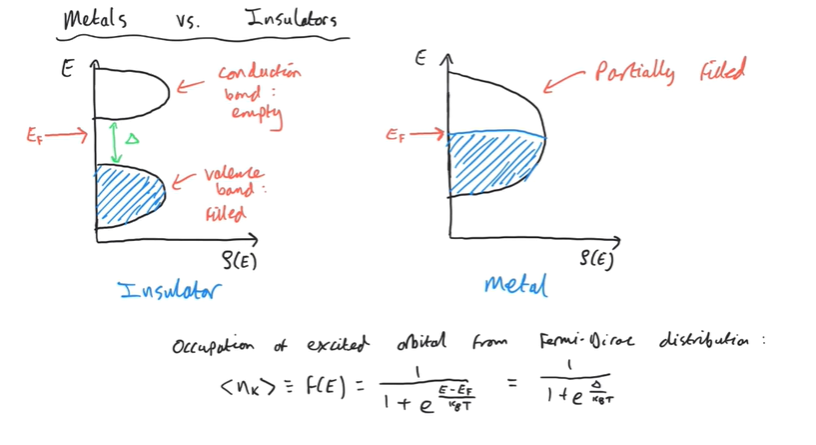 Metals vs. Insulators
E
conduction
band:
empty
E_F
Δ
valence
band:
filled
ρ(E)
Insulator
E
Partially filled
E_F
ρ(E)
Metal
Occupation of excited orbital from Fermi-Dirac distribution:
<n_k> ≡ f(E) = 1/(1 + e^((E-E_F)/(k_BT))) = 1/(1+e^(Δ/(k_BT)))